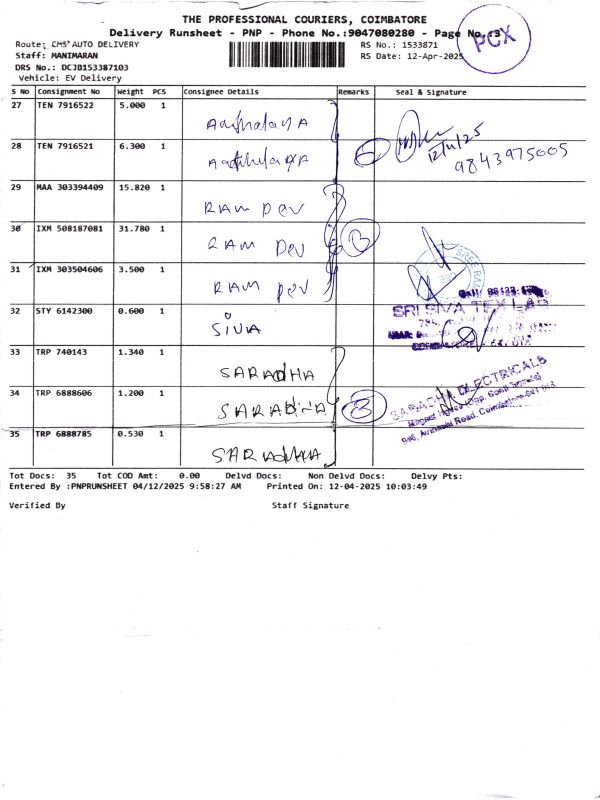 THE PROFESSIONAL COURIERS, COIMBATORE
Delivery Runsheet - PNP - Phone No.:9047080280 - Page No.:3
PCX
Route: CMS*AUTO DELIVERY
RS No.: 1533871
Staff: MANIMARAN
RS Date: 12-Apr-2025
DRS No.: DCJB153387103
Vehicle: EV Delivery
S No Consignment No Weight PCS Consignee Details Remarks Seal & Signature
27 TEN 7916522 5.000 1
28 TEN 7916521 6.300 1
12/4/25
9843975005
29 MAA 303394409 15.820 1 RAM DEV
30 IXM 508187081 31.780 1 RAM DEV
31 IXM 303504606 3.500 1 RAM DEV
SRI SIVA TEX LAB
32 STY 6142300 0.600 1 SIVA
33 TRP 740143 1.340 1 SARADHA
34 TRP 6888606 1.200 1 SARADHA
SARADHA ELECTRICALS
35 TRP 6888785 0.530 1 SARADHA
Tot Docs: 35 Tot COD Amt: 0.00 Delvd Docs: Non Delvd Docs: Delvy Pts:
Entered By :PNPRUNSHEET 04/12/2025 9:58:27 AM Printed On: 12-04-2025 10:03:49
Verified By Staff Signature